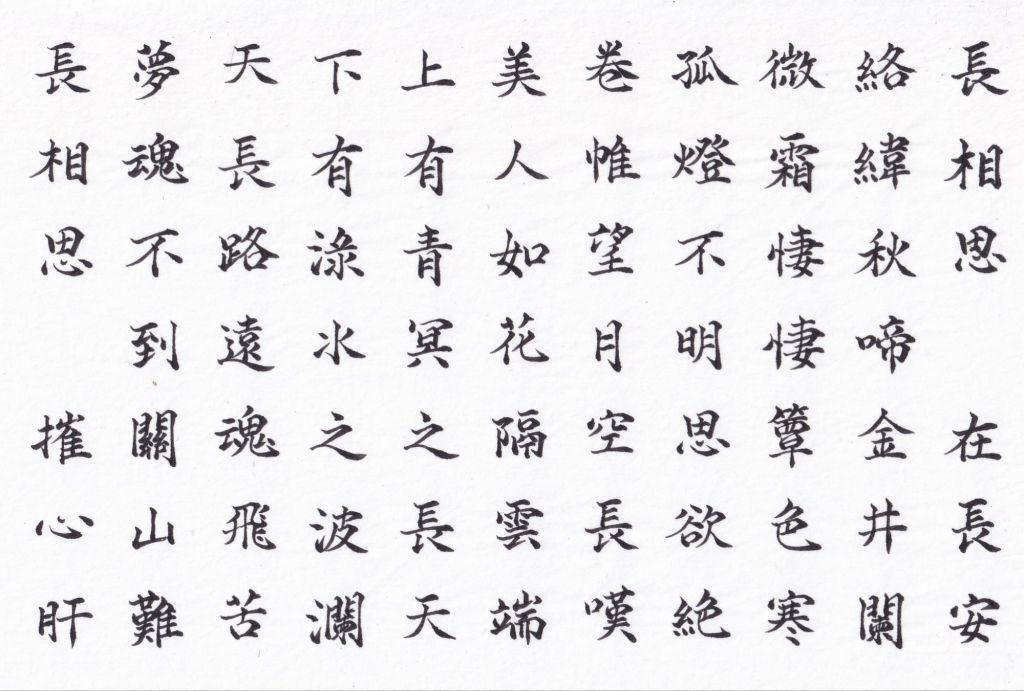 長相思 在長安
絡緯秋啼金井闌
微霜悽悽簟色寒
孤燈不明思欲絶
卷帷望月空長嘆
美人如花隔雲端
上有青冥之長天
下有淥水之波瀾
天長路遠魂飛苦
夢魂不到關山難
長相思 摧心肝